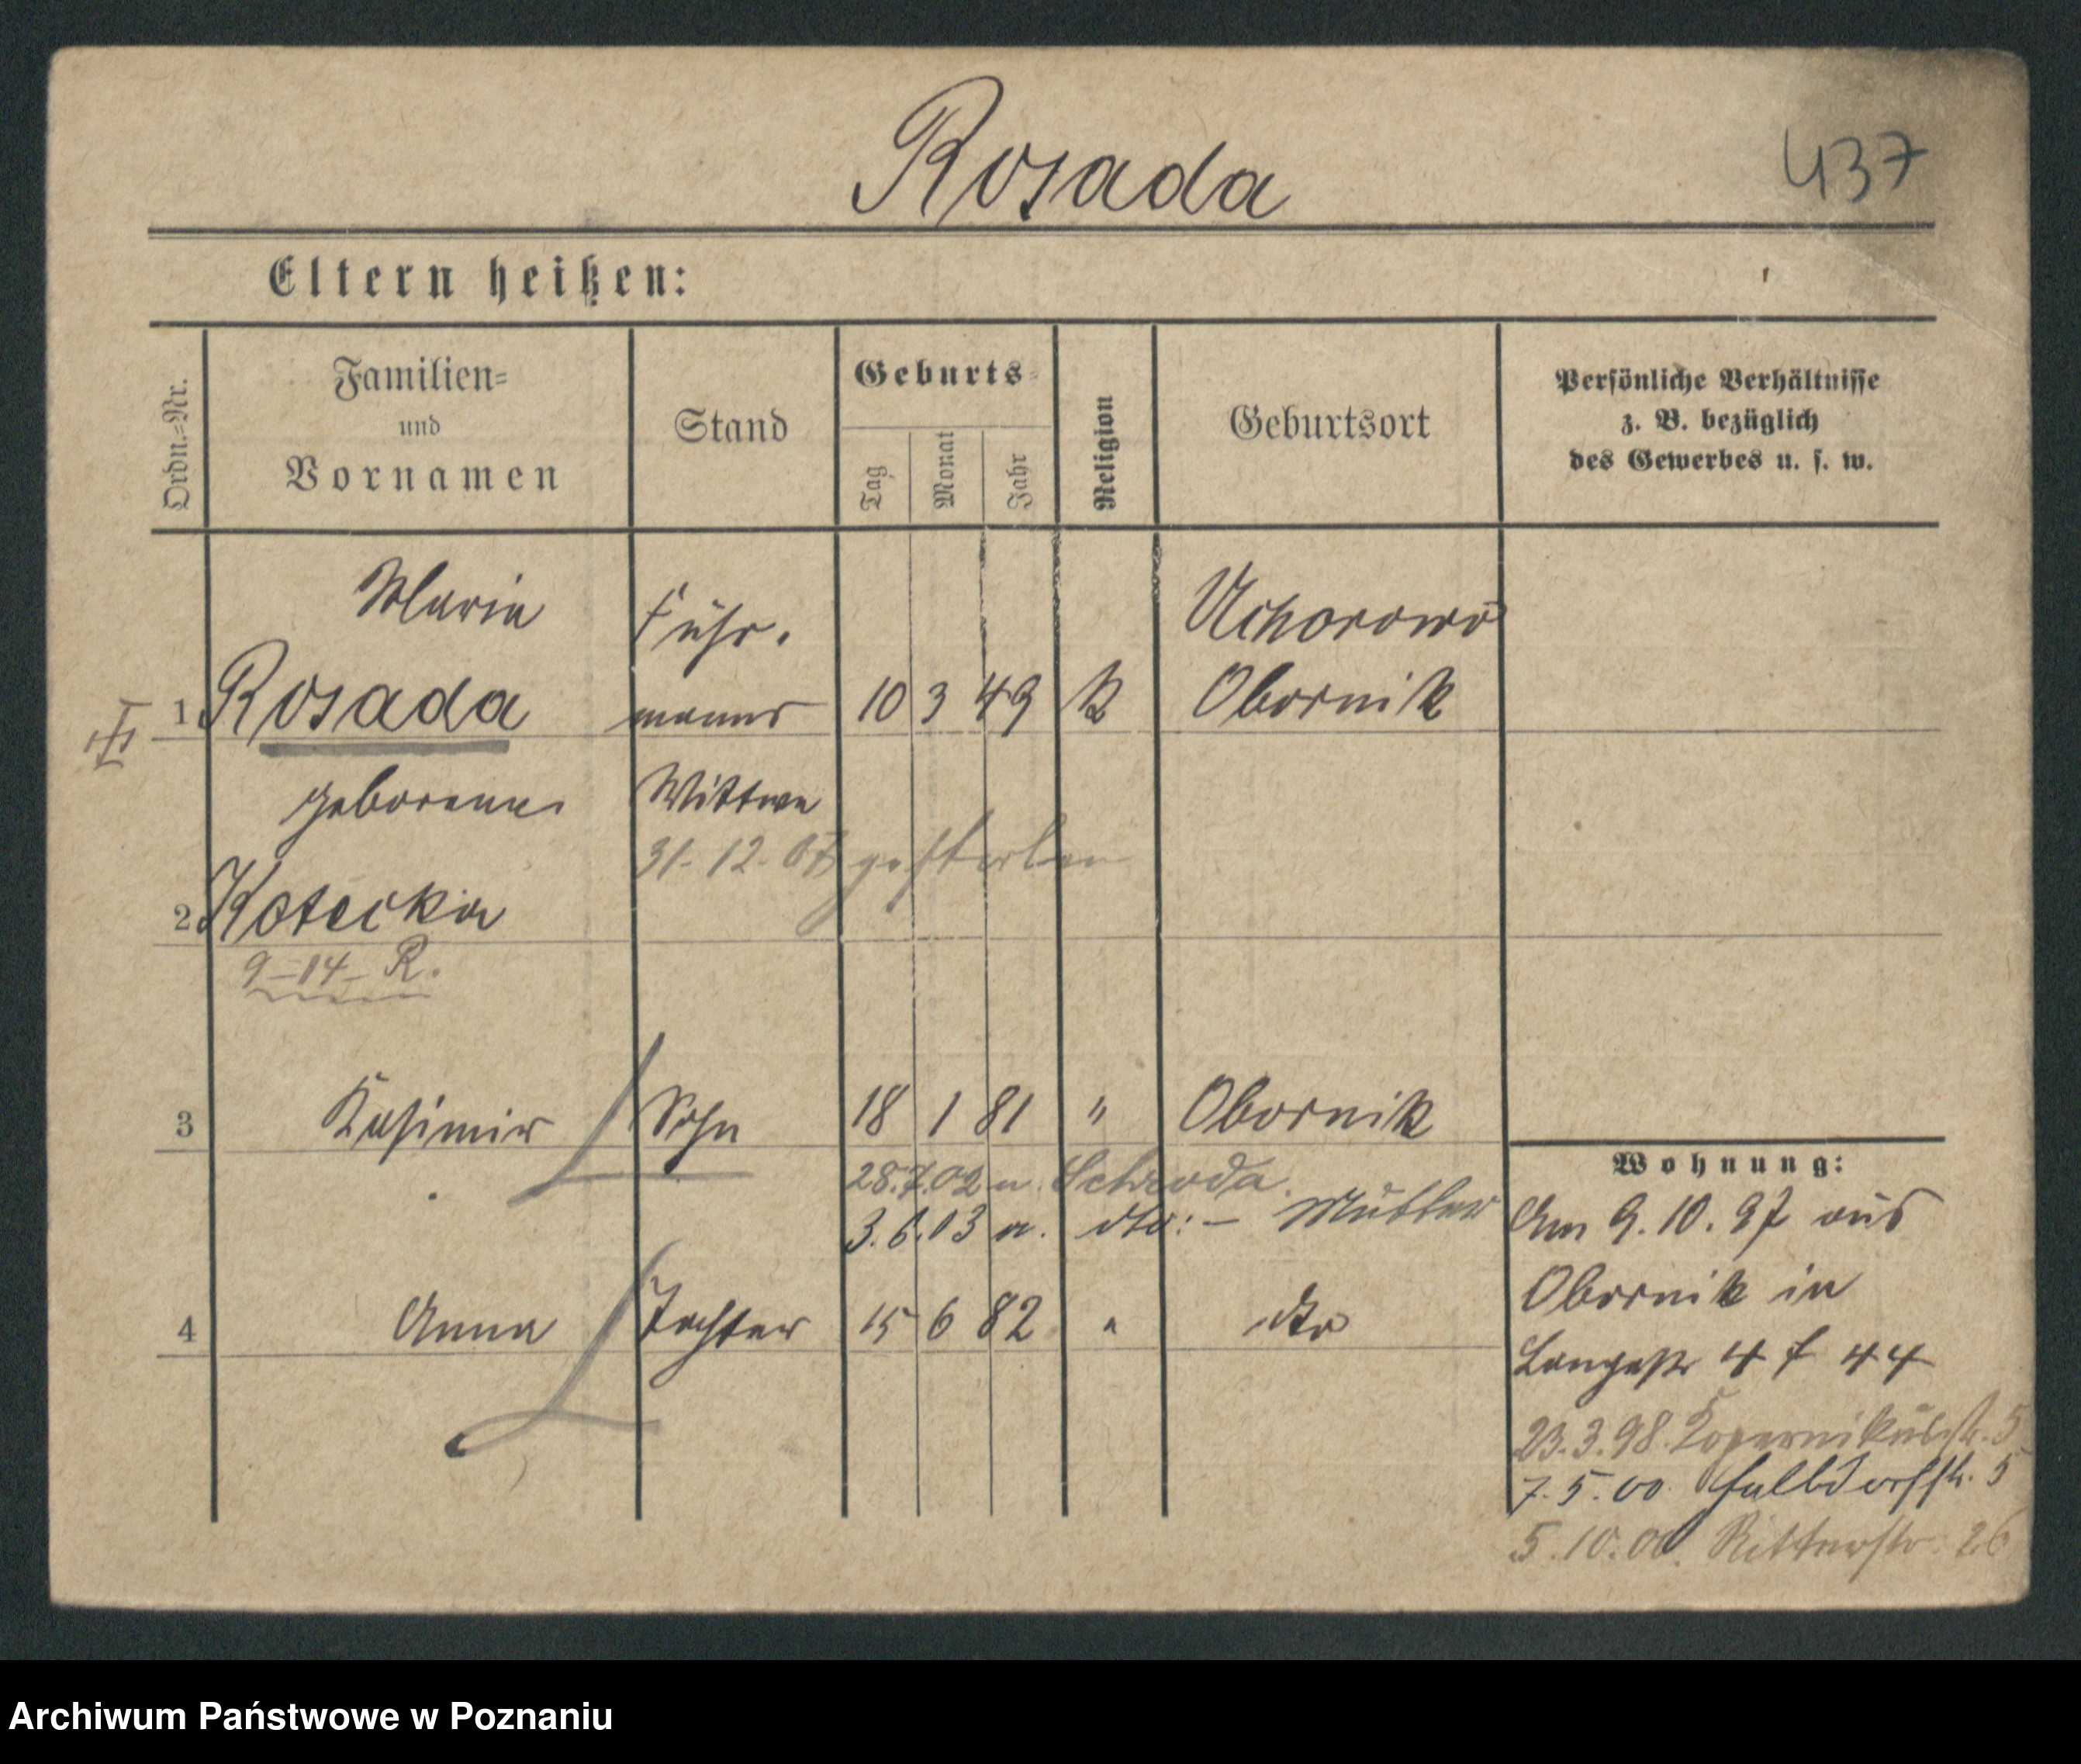 Rosada
437
Eltern heißen:
Ordn.-Nr.
Familien-
und
Vornamen
Stand
Geburts-
Tag
Monat
Jahr
Religion
Geburtsort
Persönliche Verhältnisse
z. B. bezüglich
des Gewerbes u. s. w.
Maria
Fuhr-
Uchorowo
1 Rosada
manns
10 3 49 K Obornik
geborene
Wittwe
31-12-07 gestorben
2 Kotecka
9-14-R.
3 Kasimir Sohn 18 1 81 " Obornik
28.7.02 n. Schroda.
3.6.03 a. dto: - Mutter
4 Anna Tochter 15 6 82 " dto
Wohnung:
Am 9.10.97 aus
Obornik in
Langestr 4 f 44
23.3.98. Kopernikusstr. 5
7.5.00. Halbdorfstr. 5
5.10.00. Ritterstr. 26
Archiwum Państwowe w Poznaniu